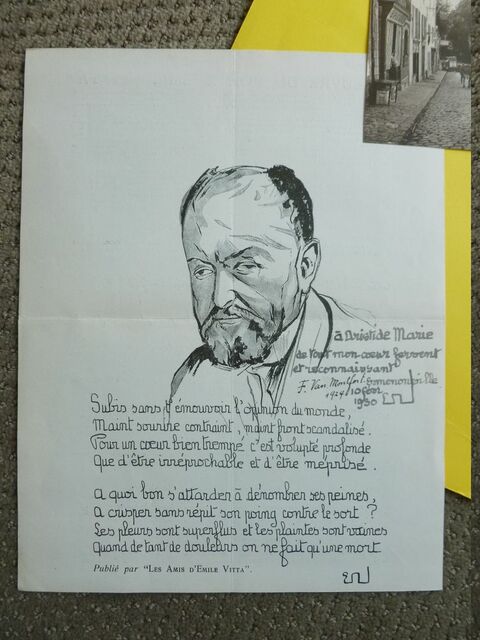 à Aristide Marie
de tout mon cœur fervent
et reconnaissant
F. Van Montfort
Ermenonville
1929
10 fév.
1930
EV
Subis sans t'émouvoir l'opinion du monde,
Maint sourire contraint, maint front scandalisé.
Pour un cœur bien trempé c'est volupté profonde
Que d'être irréprochable et d'être méprisé.
A quoi bon s'attarder à dénombrer ses peines,
A crisper sans répit son poing contre le sort ?
Les pleurs sont superflus et les plaintes sont vaines
Quand de tant de douleurs on ne fait qu'une mort
Publié par "Les Amis d'Emile Vitta".
EV